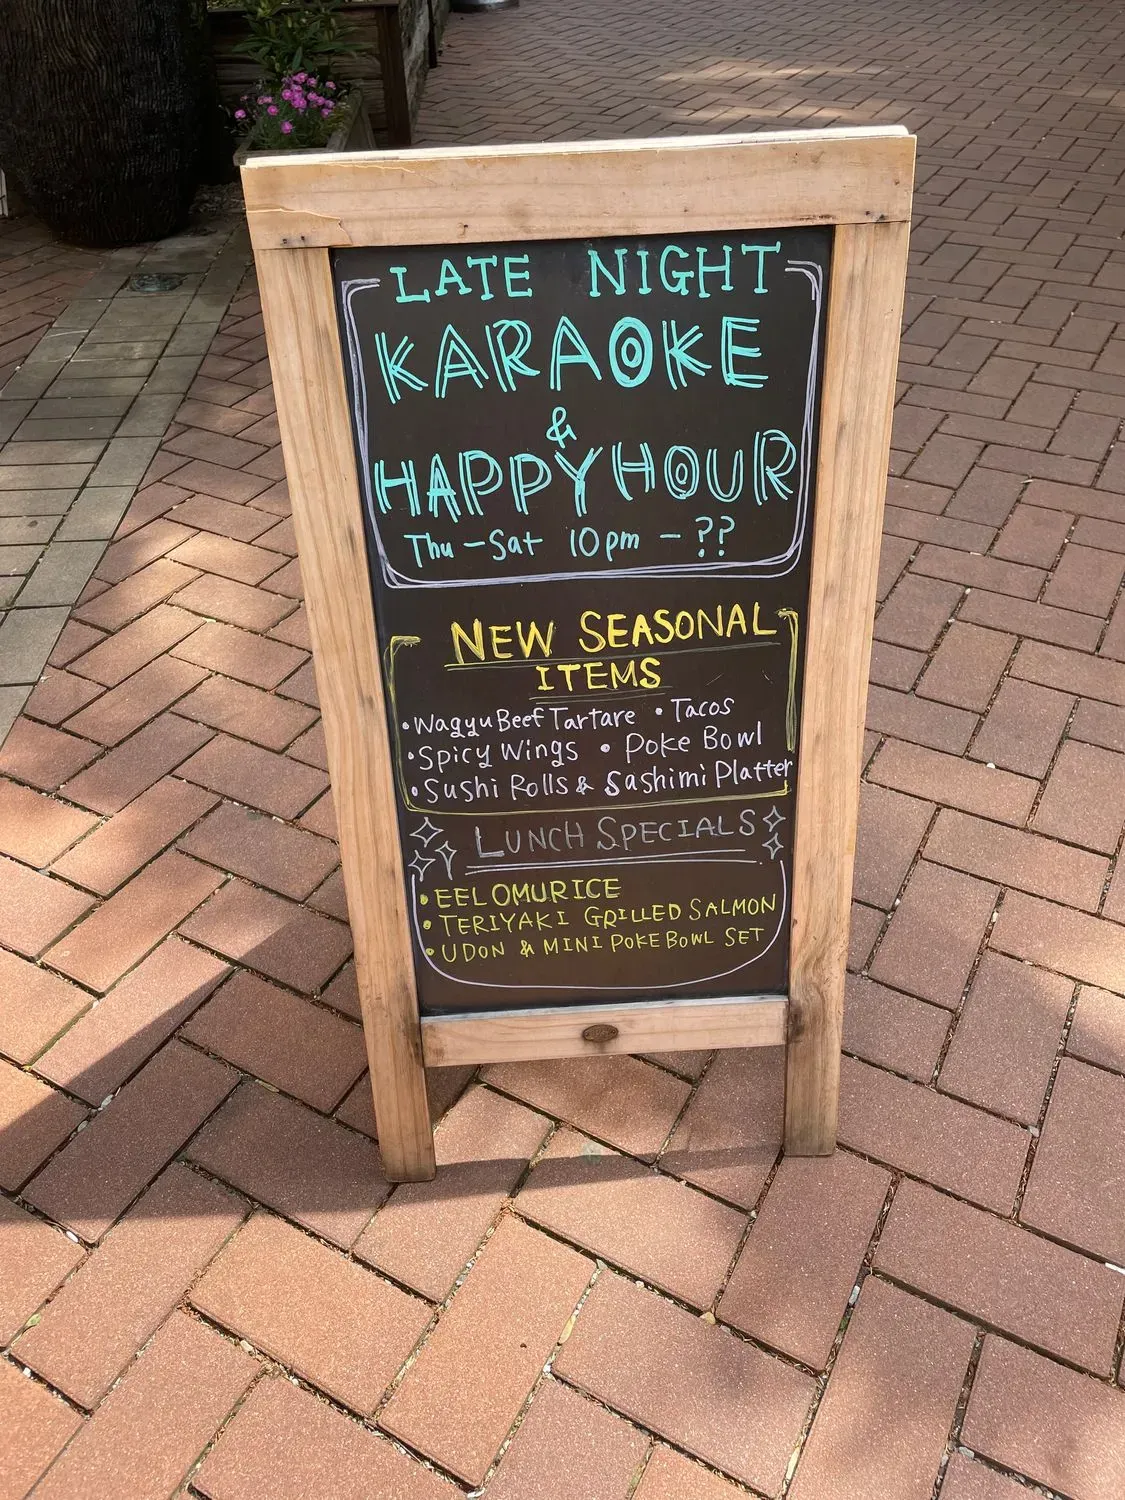 LATE NIGHT
KARAOKE
&
HAPPY HOUR
Thu - Sat 10pm - ??
NEW SEASONAL
ITEMS
• Wagyu Beef Tartare • Tacos
• Spicy Wings • Poke Bowl
• Sushi Rolls & Sashimi Platter
LUNCH SPECIALS
• EEL OMURICE
• TERIYAKI GRILLED SALMON
• UDON & MINI POKE BOWL SET